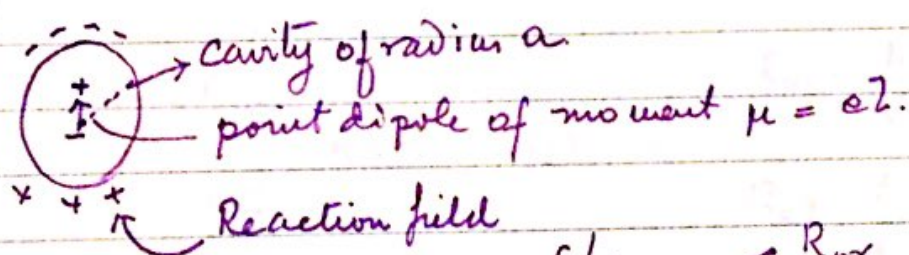 cavity of radius a.
point dipole of moment μ = el.
Reaction field